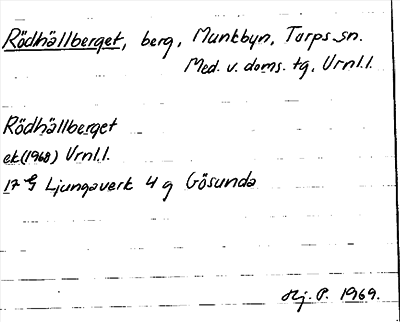 Rödhällberget, berg, Munkbyn, Torps sn.
Med. v. doms. tg, Vrnl.l.
Rödhällberget
ek (1968) Vrnl.l.
17 G Ljungaverk 4 g Gösunda
Hj. P. 1969.